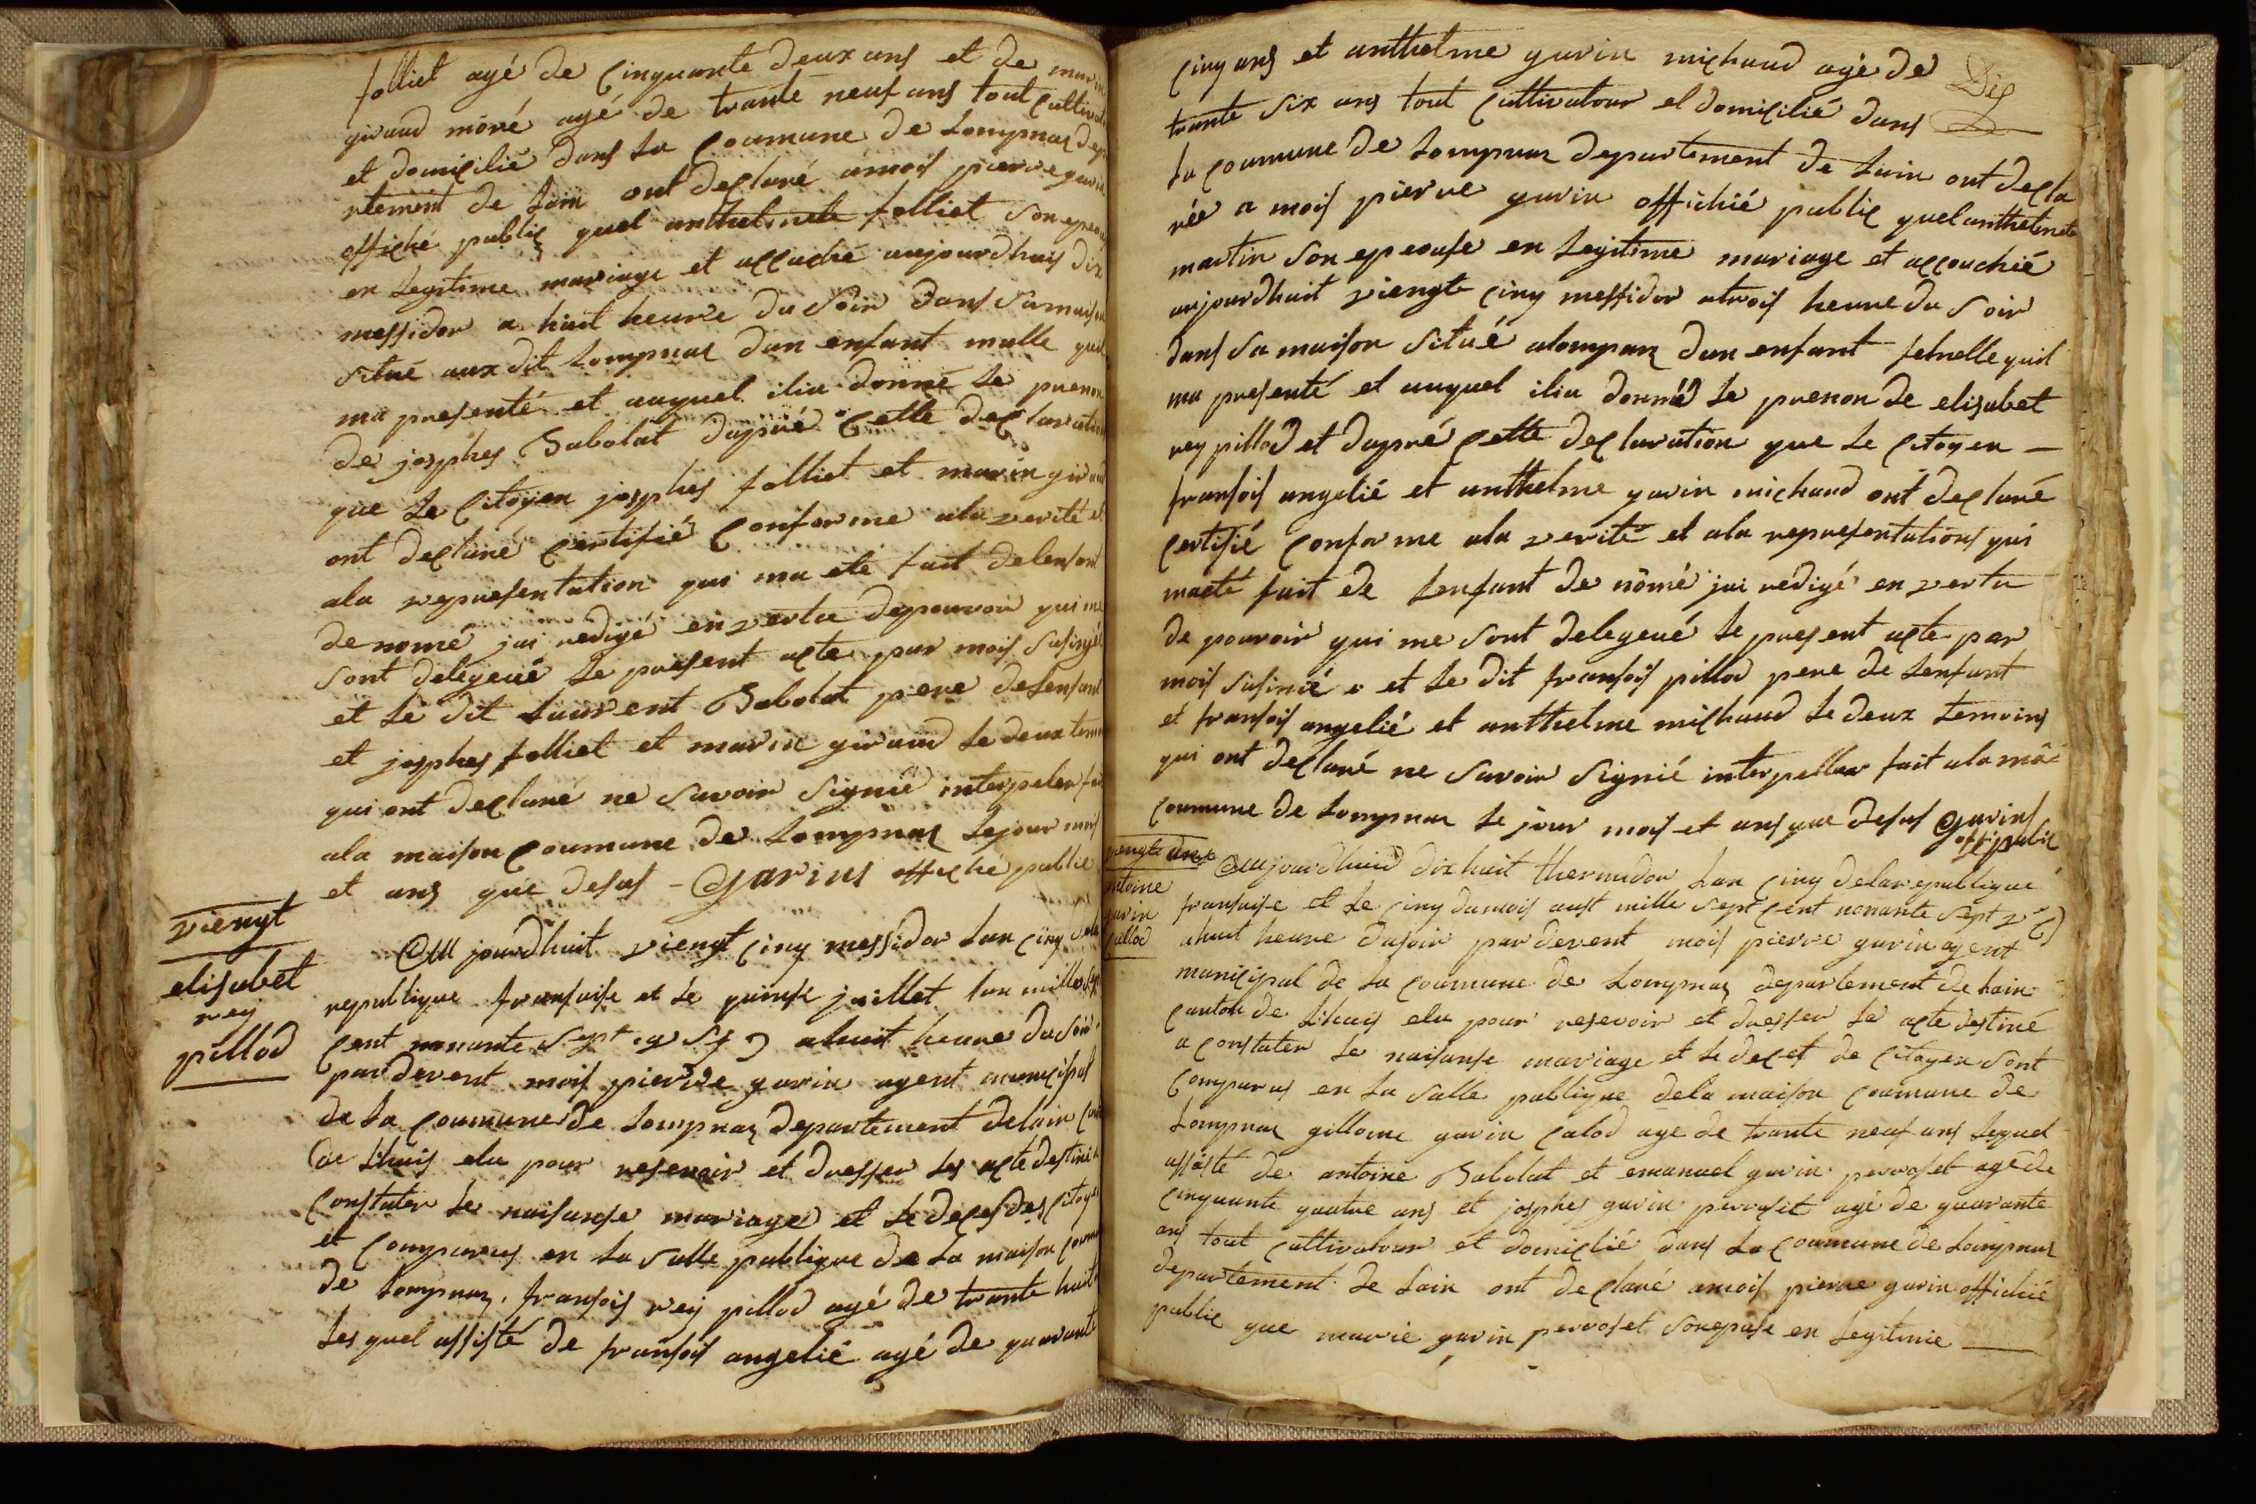 folliet agé de cinquante deux ans et de marin
giraud môré agé de trante neuf ans tout cultivat
et domicilié dans la coumune de Lompnaz depa
rtement de Lain ont declaré a mois pierre gavin
offiché public quel anthelmete folliet son epeouse
en legitime mariage et accuché aujourdhuis dix
messidor a huit heure du soir dans sa maison
situé aux dit Lompnaz dun enfant malle quil
ma presenté et auquel ilia donné le prenon
de josphes Babolat dapré cette declaration
que le citoyen josphes folliet et marin giraud
ont declaré certifié conforme ala verité et
ala representation qui ma eté fait delenfant
de nomé jai redigé en vertu depouvoir qui me
sont delegeué le present acte par mois susigné
et le dit Laurent Babolat pere delenfant
et josphes folliet et marin giraud le deux temoin
qui ont declaré ne savoir signié interpeler fait
ala maison coumune de Lompnaz lejour mois
et ans que desus - Gavins offiché public
viengt
elisabet
rey
pillod
Au jourdhuit viengt cinq messidor lan cinq dela
republique fransaise et le quinse juillet lan mille sept
cent nonante sept v s ahuit heure du soir
par devent mois pierre gavin agent municipal
de la coumune de Lompnaz departement delain can
de Lihuis elu pour resevoir et dresser les acte destiné a
constater le naisanse mariage et le deces des citoye
et comparus en la salle publique de la maison coumu
de Lompnaz fransois rey pillod agé de trante huit
les quel assisté de fransois angelié agé de quarante
cinq ans et anthelme gavin michaud agé de
Dis
trante six ans tout cultivatour et domicilié dans
la coumune de Lompnaz departement de Lain ont decla
rée a mois pierre gavin offichié public quel anthelmete
martin son epeouse en legitime mariage et accouchié
aujourdhuit viengt cinq messidor atrois heure du soir
dans sa maison situé alompnaz dun enfant femelle quil
ma presenté et auquel ilia donné le prenon de elisabet
rey pillod et dapré cette declaration que le citoyen —
fransois angelié et anthelme gavin michaud ont declaré
certifié conforme ala verité et ala representations qui
maeté fait de Lenfant de nômé jai redigé en vertu
de pouvoir qui me sont delegeué le present acte par
mois susinié et le dit fransois pillod pere de Lenfant
et fransois angelié et anthelme michaud le deux temoins
qui ont declaré ne savoir signié interpeller fait ala mâi
coumune de Lompnaz le jour mois et ans que desus Gavins
off public
viengte une
antoine
gavin
callod
Aujourdhuid dix huit thermidor Lan cinq delarepublique
fransaise et le cinq dumois aust mille sept cent nonante sept v s
ahuit heure dusoir par devent mois pierre gavin agent
municipal de la coumune de Lompnaz departement de Lain
canton de Lihuis elu pour resevoir et dresser le acte destiné
a constater le naisanse mariage et le decet de citoyen sont
comparus en la salle publique dela maison coumune de
Lompnaz gillome gavin calod age de trante neuf ans lequel
assisté de antoine Babolat et emanuel gavin perroset agé de
cinquante quatre ans et josphes gavin perroset agé de quarante
ans tout cultivatour et domiclié dans la coumune de Lompnaz
departement de Lain ont declaré amois pierre gavin offichié
public que marie gavin perroset sonepose en legitimie —